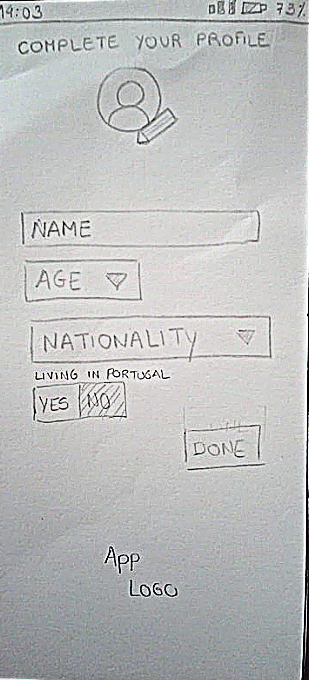 19:03 73%
COMPLETE YOUR PROFILE
NAME
AGE
NATIONALITY
LIVING IN PORTUGAL
YES NO
DONE
App
LOGO